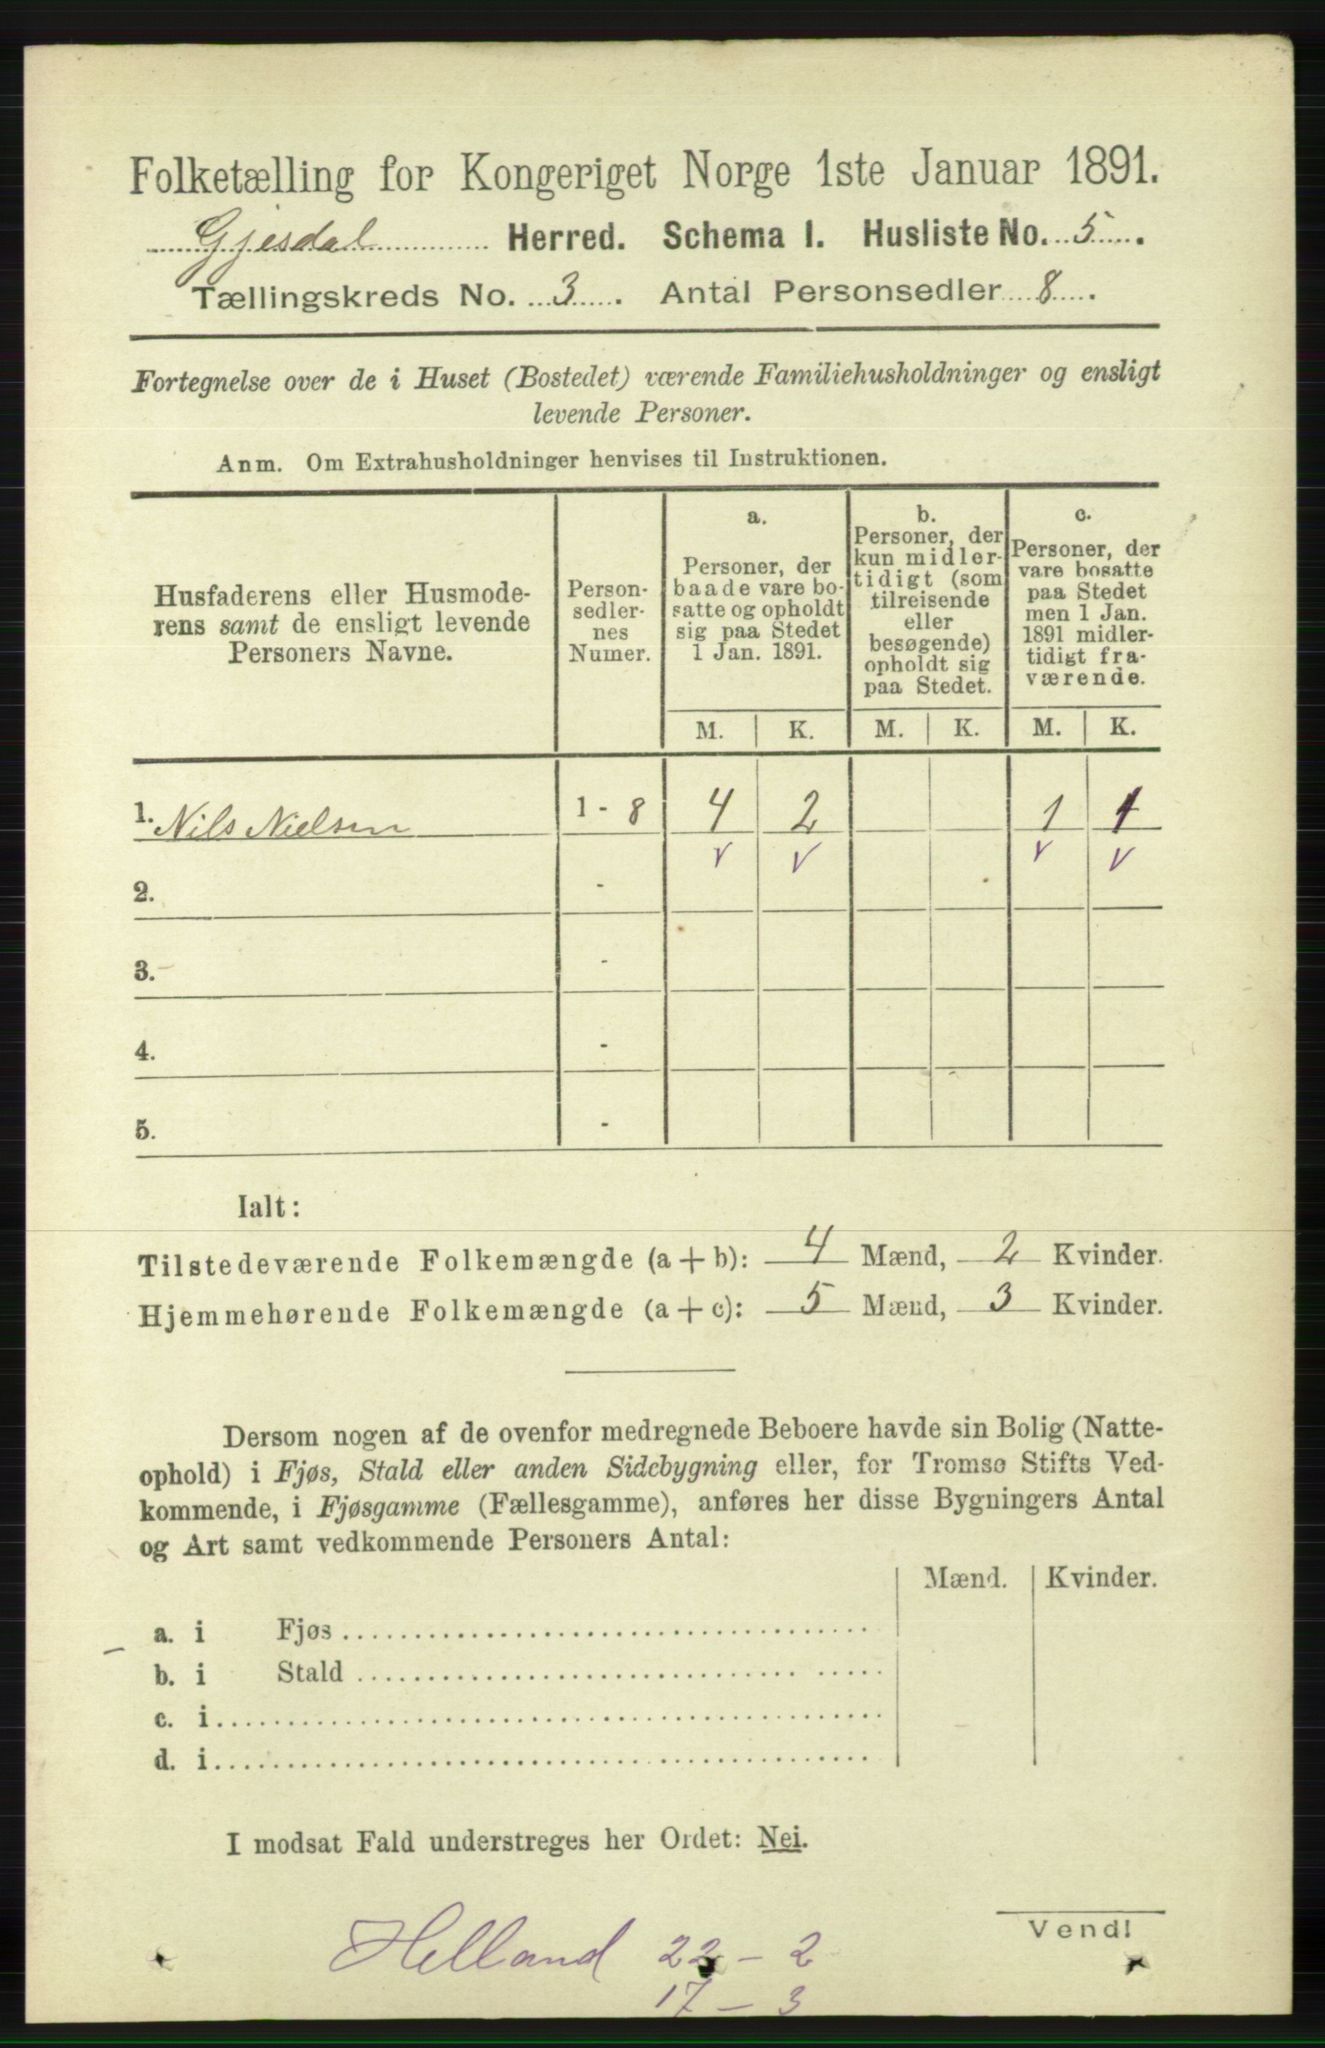 Folketælling for Kongeriget Norge 1ste Januar 1891.
Gjesdal Herred. Schema I. Husliste No. 5.
Tællingskreds No. 3. Antal Personsedler 8.
Fortegnelse over de i Huset (Bostedet) værende Familiehusholdninger og ensligt
levende Personer.
Anm. Om Extrahusholdninger henvises til Instruktionen.
Husfaderens eller Husmode-
rens samt de ensligt levende
Personers Navne.
Person-
sedler-
nes
Numer.
a.
Personer, der
baade vare bo-
satte og opholdt
sig paa Stedet
1 Jan. 1891.
b.
Personer, der
kun midler-
tidigt (som
tilreisende
eller
besøgende)
opholdt sig
paa Stedet.
c.
Personer, der
vare bosatte
paa Stedet
men 1 Jan.
1891 midler-
tidigt fra-
værende.
M. K. M. K. M. K.
1. Nils Nielsen 1 - 8 4 2 1 1
v v v v
2. -
3. -
4. -
5. -
Ialt:
Tilstedeværende Folkemængde (a + b): 4 Mænd, 2 Kvinder.
Hjemmehørende Folkemængde (a + c): 5 Mænd, 3 Kvinder.
Dersom nogen af de ovenfor medregnede Beboere havde sin Bolig (Natte-
ophold) i Fjøs, Stald eller anden Sidebygning eller, for Tromsø Stifts Ved-
kommende, i Fjøsgamme (Fællesgamme), anføres her disse Bygningers Antal
og Art samt vedkommende Personers Antal:
Mænd. Kvinder.
a. i Fjøs
b. i Stald
c. i
d. i
I modsat Fald understreges her Ordet: Nei.
Vend!
Helland 22 - 2
17 - 3